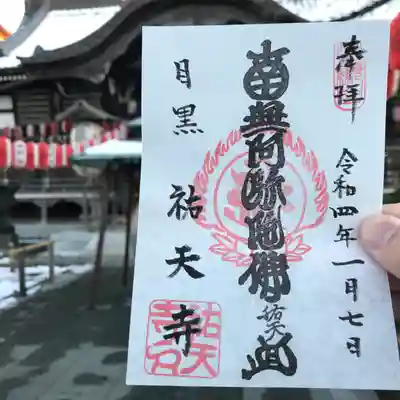 奉拝
令和四年一月七日
南無阿弥陀佛
祐天
目黒 祐天寺